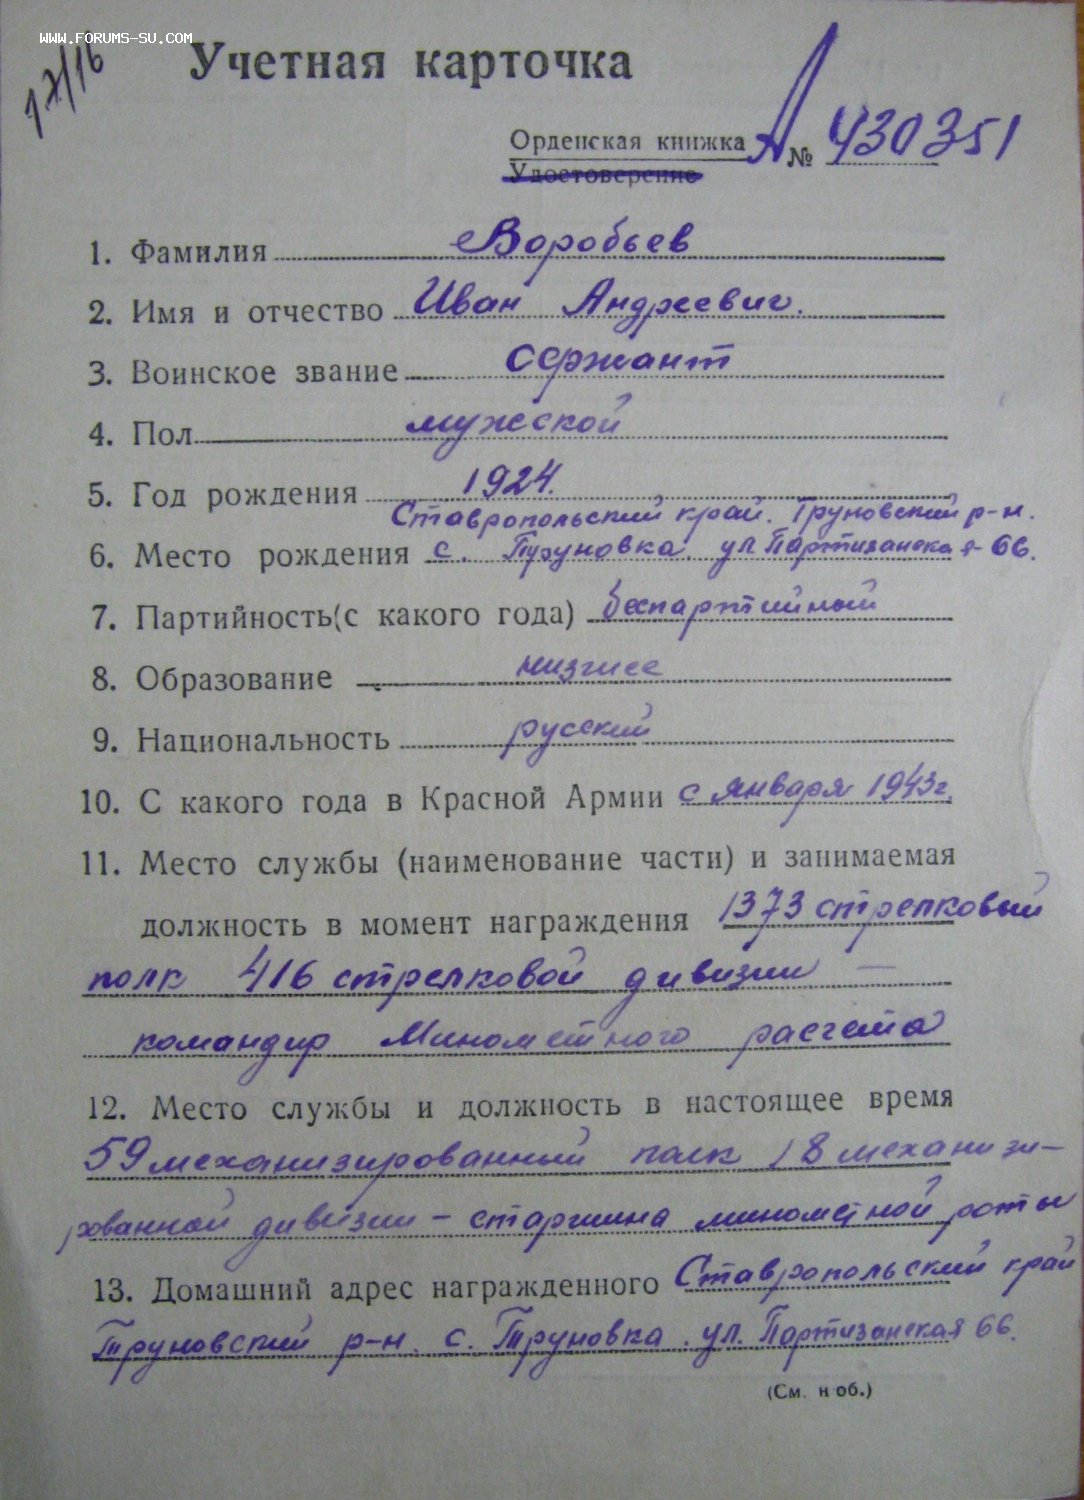 WWW.FORUMS-SU.COM
17/16
Учетная карточка
Орденская книжка А № 430351
Удостоверение
1. Фамилия Воробьев
2. Имя и отчество Иван Андреевич.
3. Воинское звание сержант
4. Пол мужской
5. Год рождения 1924.
Ставропольский край. Труновский р-н.
6. Место рождения с. Труновка. ул Партизанская-66.
7. Партийность (с какого года) беспартийный
8. Образование низшее
9. Национальность русский
10. С какого года в Красной Армии с января 1943г.
11. Место службы (наименование части) и занимаемая
должность в момент награждения 1373 стрелковый
полк 416 стрелковой дивизии —
командир Минометного расчета
12. Место службы и должность в настоящее время
59 механизированный полк 18 механизи-
рованной дивизии – старшина минометной роты
13. Домашний адрес награжденного Ставропольский край
Труновский р-н. с. Труновка. ул. Партизанская 66.
(См. н об.)